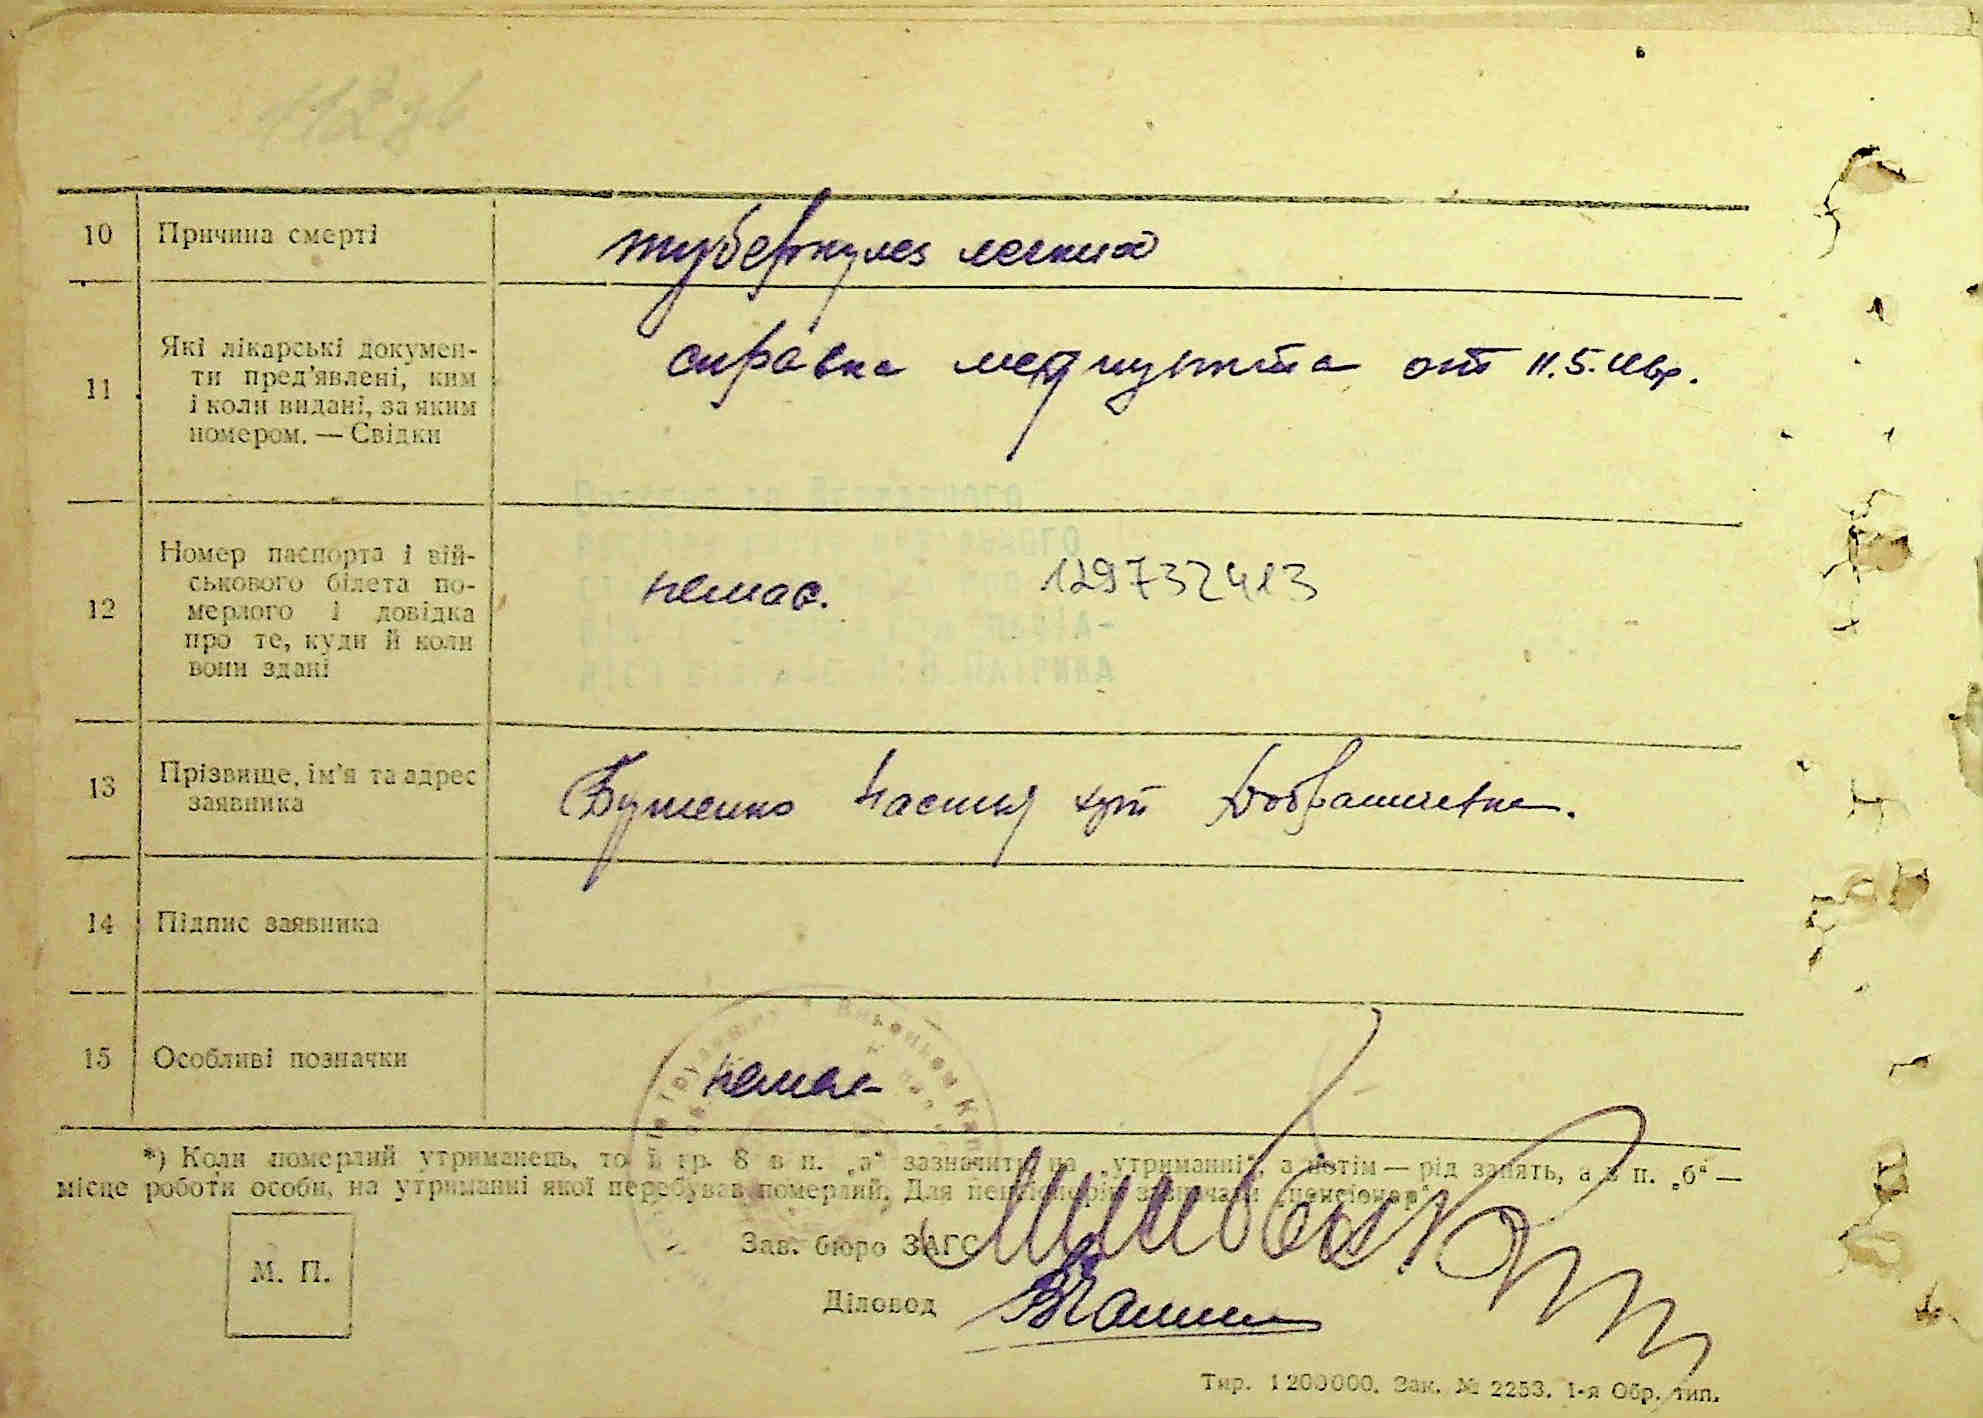 10 Причина смерті туберкулез легких
11 Які лікарські докумен-
ти пред'явлені, ким
і коли видані, за яким
номером. — Свідки
справка медпункта от 11.5.
12 Номер паспорта і вій-
ськового білета по-
мерлого і довідка
про те, куди й коли
вони здані
немає. 129732413
13 Прізвище, ім'я та адрес
заявника
Настя хут
14 Підпис заявника
15 Особливі позначки немає
*) Коли померлий утриманець, то в гр. 8 в п. „а" зазначити на „утриманні", а потім — рід занять, а в п. „б" —
місце роботи особи, на утриманні якої перебував померлий. Для пенсіонерів зазначати „пенсіонер"
Зав. бюро ЗАГС
М. П.
Діловод
Тир. 1200000. Зак. № 2253. 1-я Обр. тип.